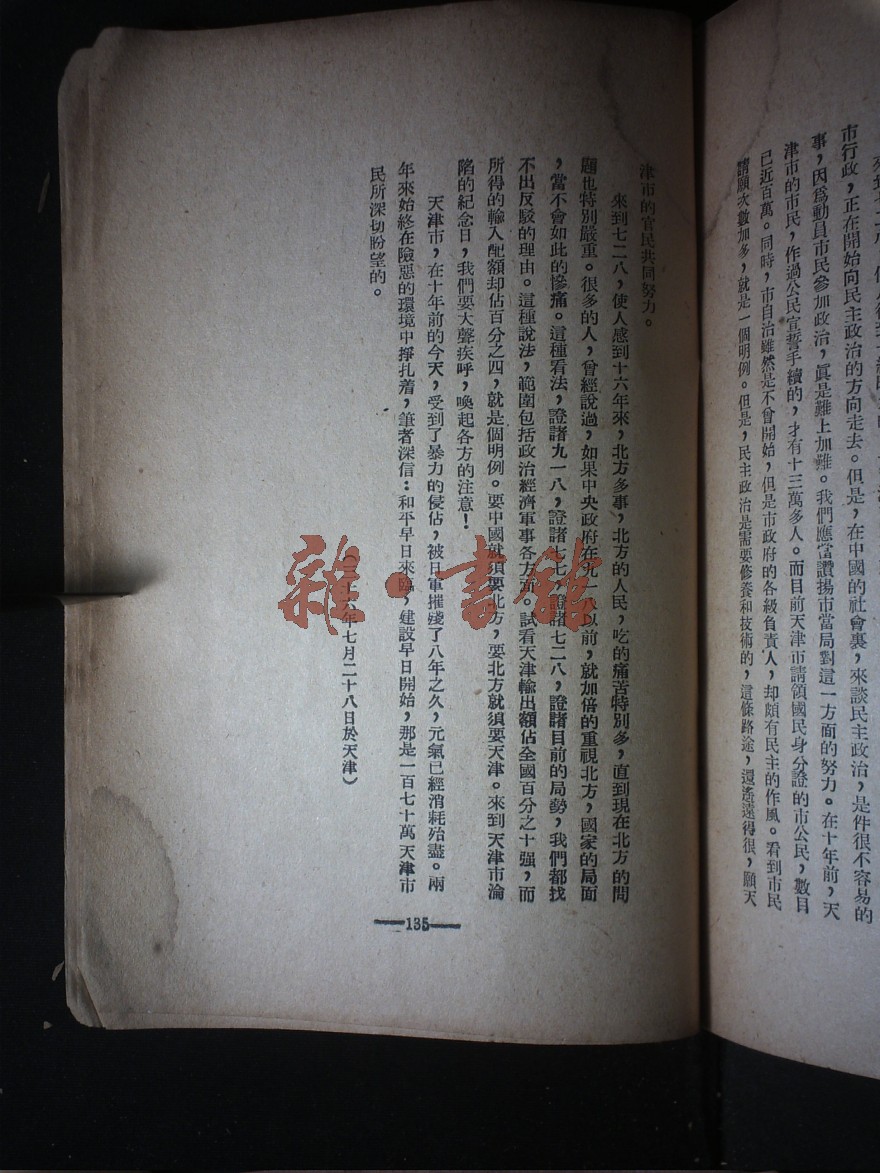 市行政，正在開始向民主政治的方向走去。但是，在中國的社會裏，來談民主政治，是件很不容易的
事，因爲動員市民參加政治，眞是難上加難。我們應當讚揚市當局對這一方面的努力。在十年前，天
津市的市民，作過公民宣誓手續的，才有十三萬多人。而目前天津市請領國民身分證的市公民，數目
已近百萬。同時，市自治雖然是不曾開始，但是市政府的各級負責人，却頗有民主的作風。看到市民
請願次數加多，就是一個明例。但是，民主政治是需要修養和技術的，這條路途，還遙遠得很，願天
津市的官民共同努力。
來到七二八，使人感到十六年來，北方多事，北方的人民，吃的痛苦特別多，直到現在北方的問
題也特別嚴重。很多的人，曾經說過，如果中央政府在九一八以前，就加倍的重視北方，國家的局面
，當不會如此的慘痛。這種看法，證諸九一八，證諸七七，證諸七二八，證諸目前的局勢，我們都找
不出反駁的理由。這種說法，範圍包括政治經濟軍事各方面。試看天津輸出額佔全國百分之十强，而
所得的輸入配額却佔百分之四，就是個明例。要中國就須要北方，要北方就須要天津。來到天津市淪
陷的紀念日，我們要大聲疾呼，喚起各方的注意！
天津市，在十年前的今天，受到了暴力的侵佔，被日軍摧殘了八年之久，元氣已經消耗殆盡。兩
年來始終在險惡的環境中掙扎着，筆者深信：和平早日來臨，建設早日開始，那是一百七十萬天津市
民所深切盼望的。
（三十六年七月二十八日於天津）
—135—
雜·書館